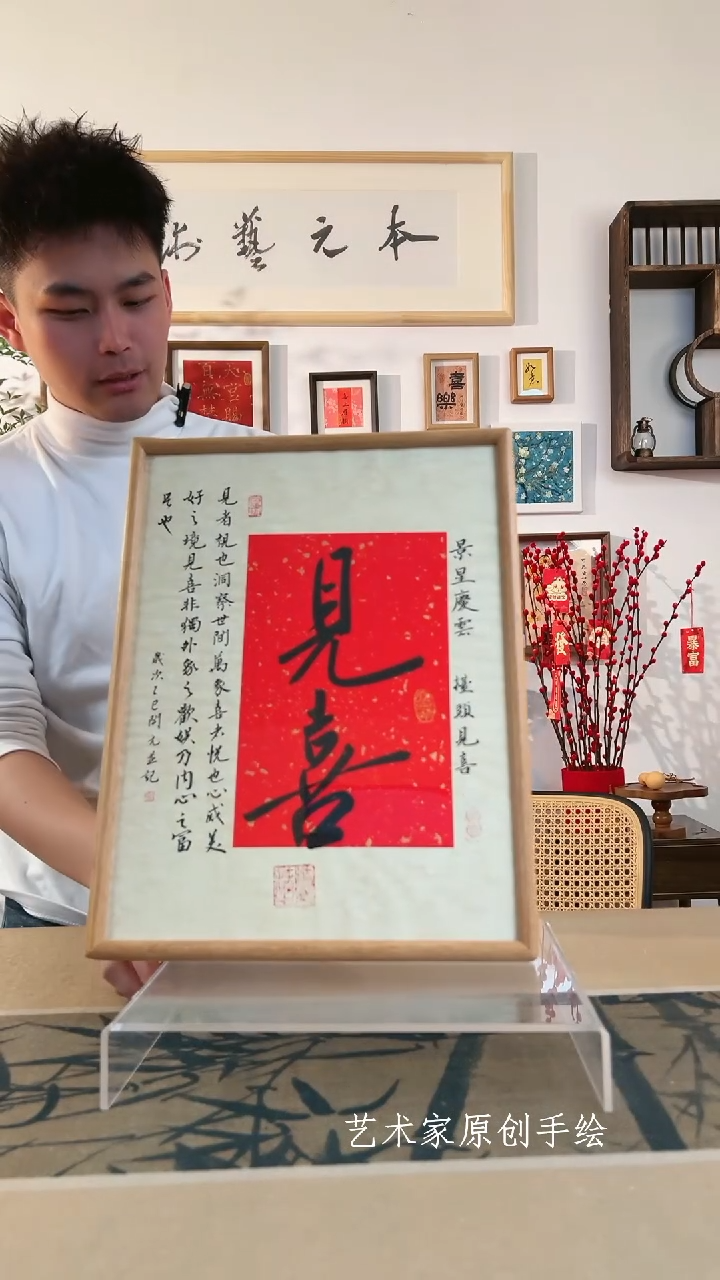 本元藝術
喜樂
景星慶雲 擡頭見喜
見喜
見者視也洞察世間萬象喜者悦也心感美
好之境見喜非獨外象之歡娱乃内心之富
足也
歲次乙巳開元並記
發
暴富
艺术家原创手绘